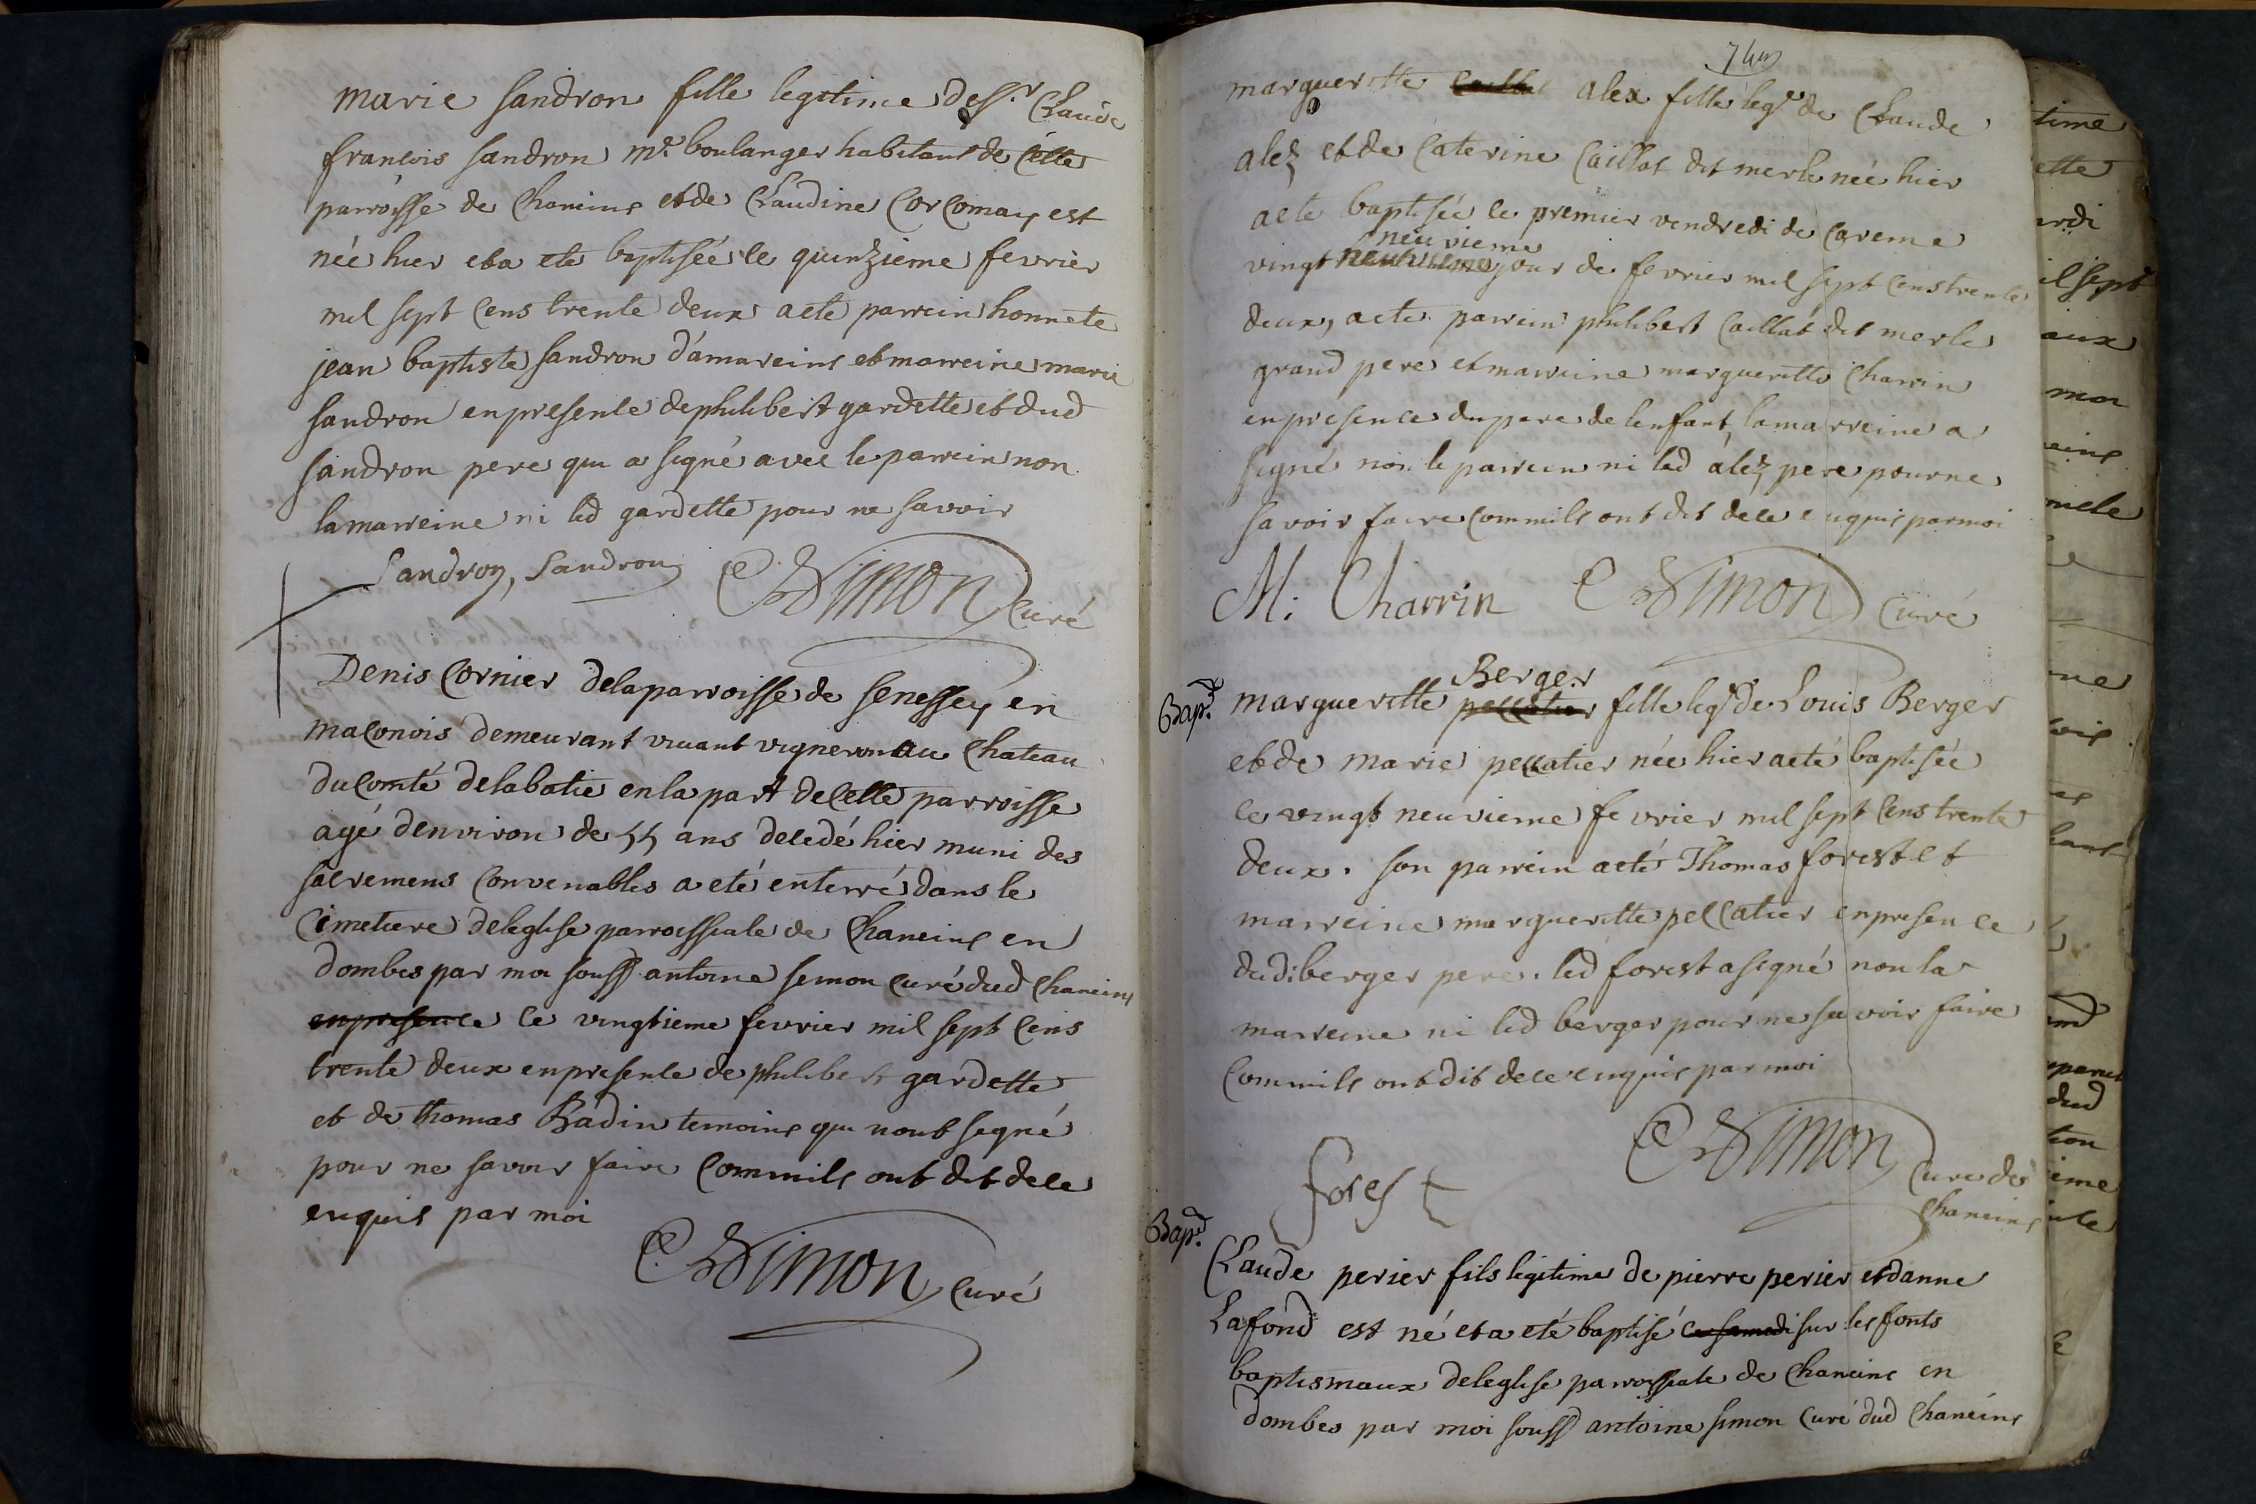 marie sandron fille legitime de sr. Claude
francois sandron me. boulanger habitant de cette
parroisse de Chaneins et de Claudine Corcomay est
née hier et a ete baptisée le quinzieme fevrier
mil sept cens trente deux a ete parrein honnete
jean baptiste sandron d'amareins et marreine marie
sandron en presence de philibert gardette et dud
sandron pere qui a signé avec le parrein non
la marreine ni led gardette pour ne savoir
Sandron, Sandron CSimon Curé
Denis Cornier de la parroisse de senessey en
maconois demeurant vivant vigneron au Chateau
du Comté de la batie en la part de cette parroisse
agé denviron de 55 ans decedé hier muni des
sacremens convenables a eté enterré dans le
Cimetiere de leglise parroissiale de Chaneins en
dombes par moi souss antoine simon curé dud Chaneins
en presence le vingtieme fevrier mil sept cens
trente deux en presence de philibert gardette
et de thomas Badin temoins qui nont signé
pour ne savoir faire comm ils ont dit de ce
enquis par moi
CSimon Curé
marguerite alex fille leg^e de Claude
alez et de Caterine Caillat dit merle née hier
a ete baptisée le premier vendredi de Careme
neuvieme
vingt jour de fevrier mil sept cens trente
deux, a ete parrein philibert Caillat dit merle
grand pere et marreine marguerite Charrin
en presence du pere de lenfant, la marreine a
signé non le parrein ni led alez pere pour ne
savoir faire comm ils ont dit de ce enquis par moi
M: Charrin CSimon Curé
Berger
Bapt. marguerite pellatier fille leg^e de Louis Berger
et de marie pellatier née hier a eté baptisée
le vingt neuvieme fevrier mil sept cens trente
deux. son parrein a eté Thomas forest et
marreine marguerite pellatier en presence
dud: berger pere. led forest a signé non la
marreine ni led berger pour ne savoir faire
comm ils ont dit de ce enquis par moi
CSimon
forest Curé de
Chaneins
Bapt. Claude perier fils legitime de pierre perier et danne
Lafond est né et a eté baptisé ce samedi sur les fonts
baptismaux de leglise parroissiale de Chaneins en
dombes par moi souss antoine simon Curé dud Chaneins